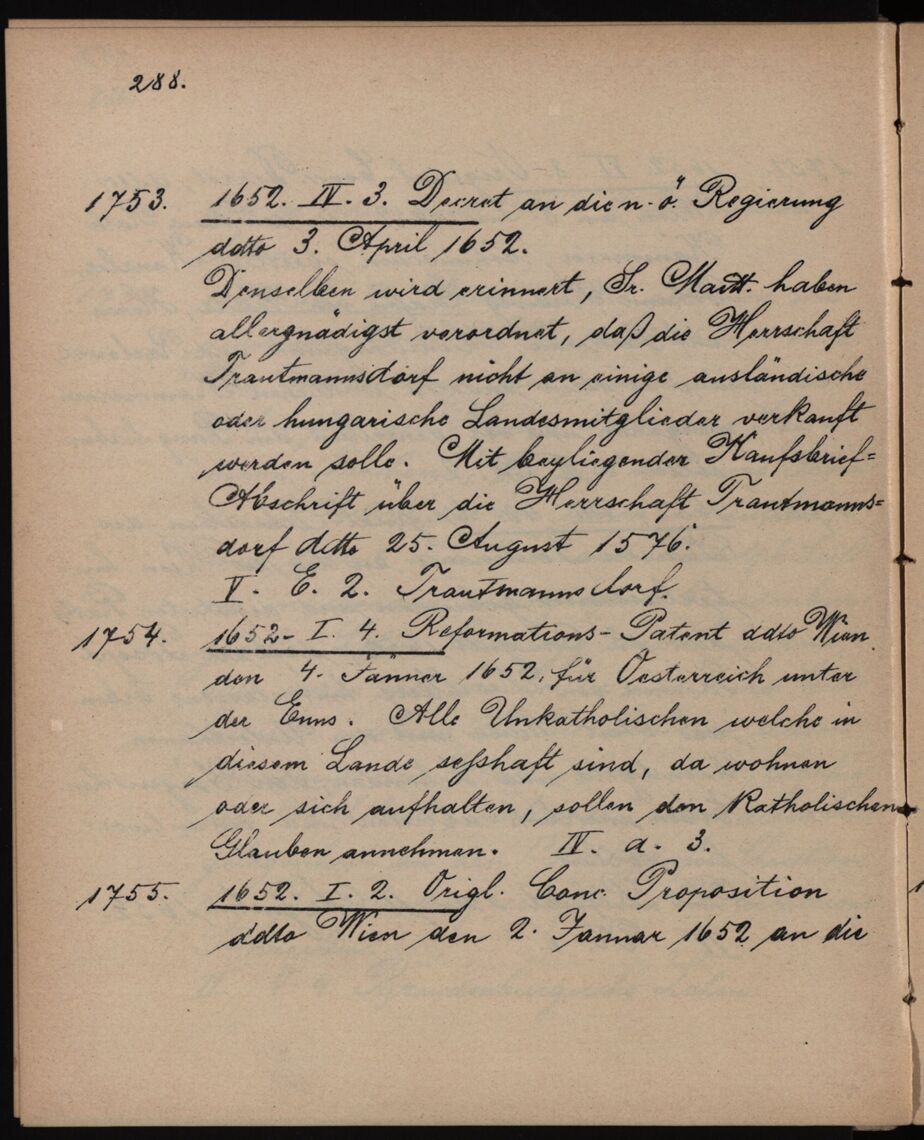 288.
1753. 1652. IV. 3. Decret an die n. ö. Regierung
ddto 3. April 1652.
Denselben wird erinnert, Sr. Maitt. haben
allergnädigst verordnet, daß die Herrschaft
Trautmannsdorf nicht an einige ausländische
oder hungarische Landesmitglieder verkauft
werden solle. Mit beyliegender Kaufsbrief=
Abschrift über die Herrschaft Trautmanns=
dorf ddto 25. August 1576.
V. E. 2. Trautmannsdorf.
1754. 1652- I. 4. Reformations-Patent ddto Wien
den 4. Jänner 1652. für Oesterreich unter
der Enns. Alle Unkatholischen welche in
diesem Lande seßhaft sind, da wohnen
oder sich aufhalten, sollen den Katholischen
Glauben annehmen. IV. a. 3.
1755. 1652. I. 2. Origl. Conc. Proposition
ddto Wien den 2. Jannar 1652 an die